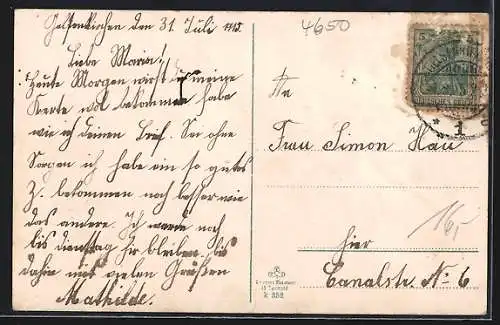 Gelsenkirchen den 31 Juli
Liebe Maria!
Heute Morgen wirst meine
Karte wol bekommen habe
wie ich deinen Brif. Sei ohne
Sorgen ich habe ein so gutes
Z. bekommen noch besser wie
das andere. Ich werde noch
bis dienstag hir bleiben. bis
dahin mit vielen Grüßen
Mathilde.
4650
An
Frau Simon Hau
hier
Canalstr. N. 6
16,-
5
1